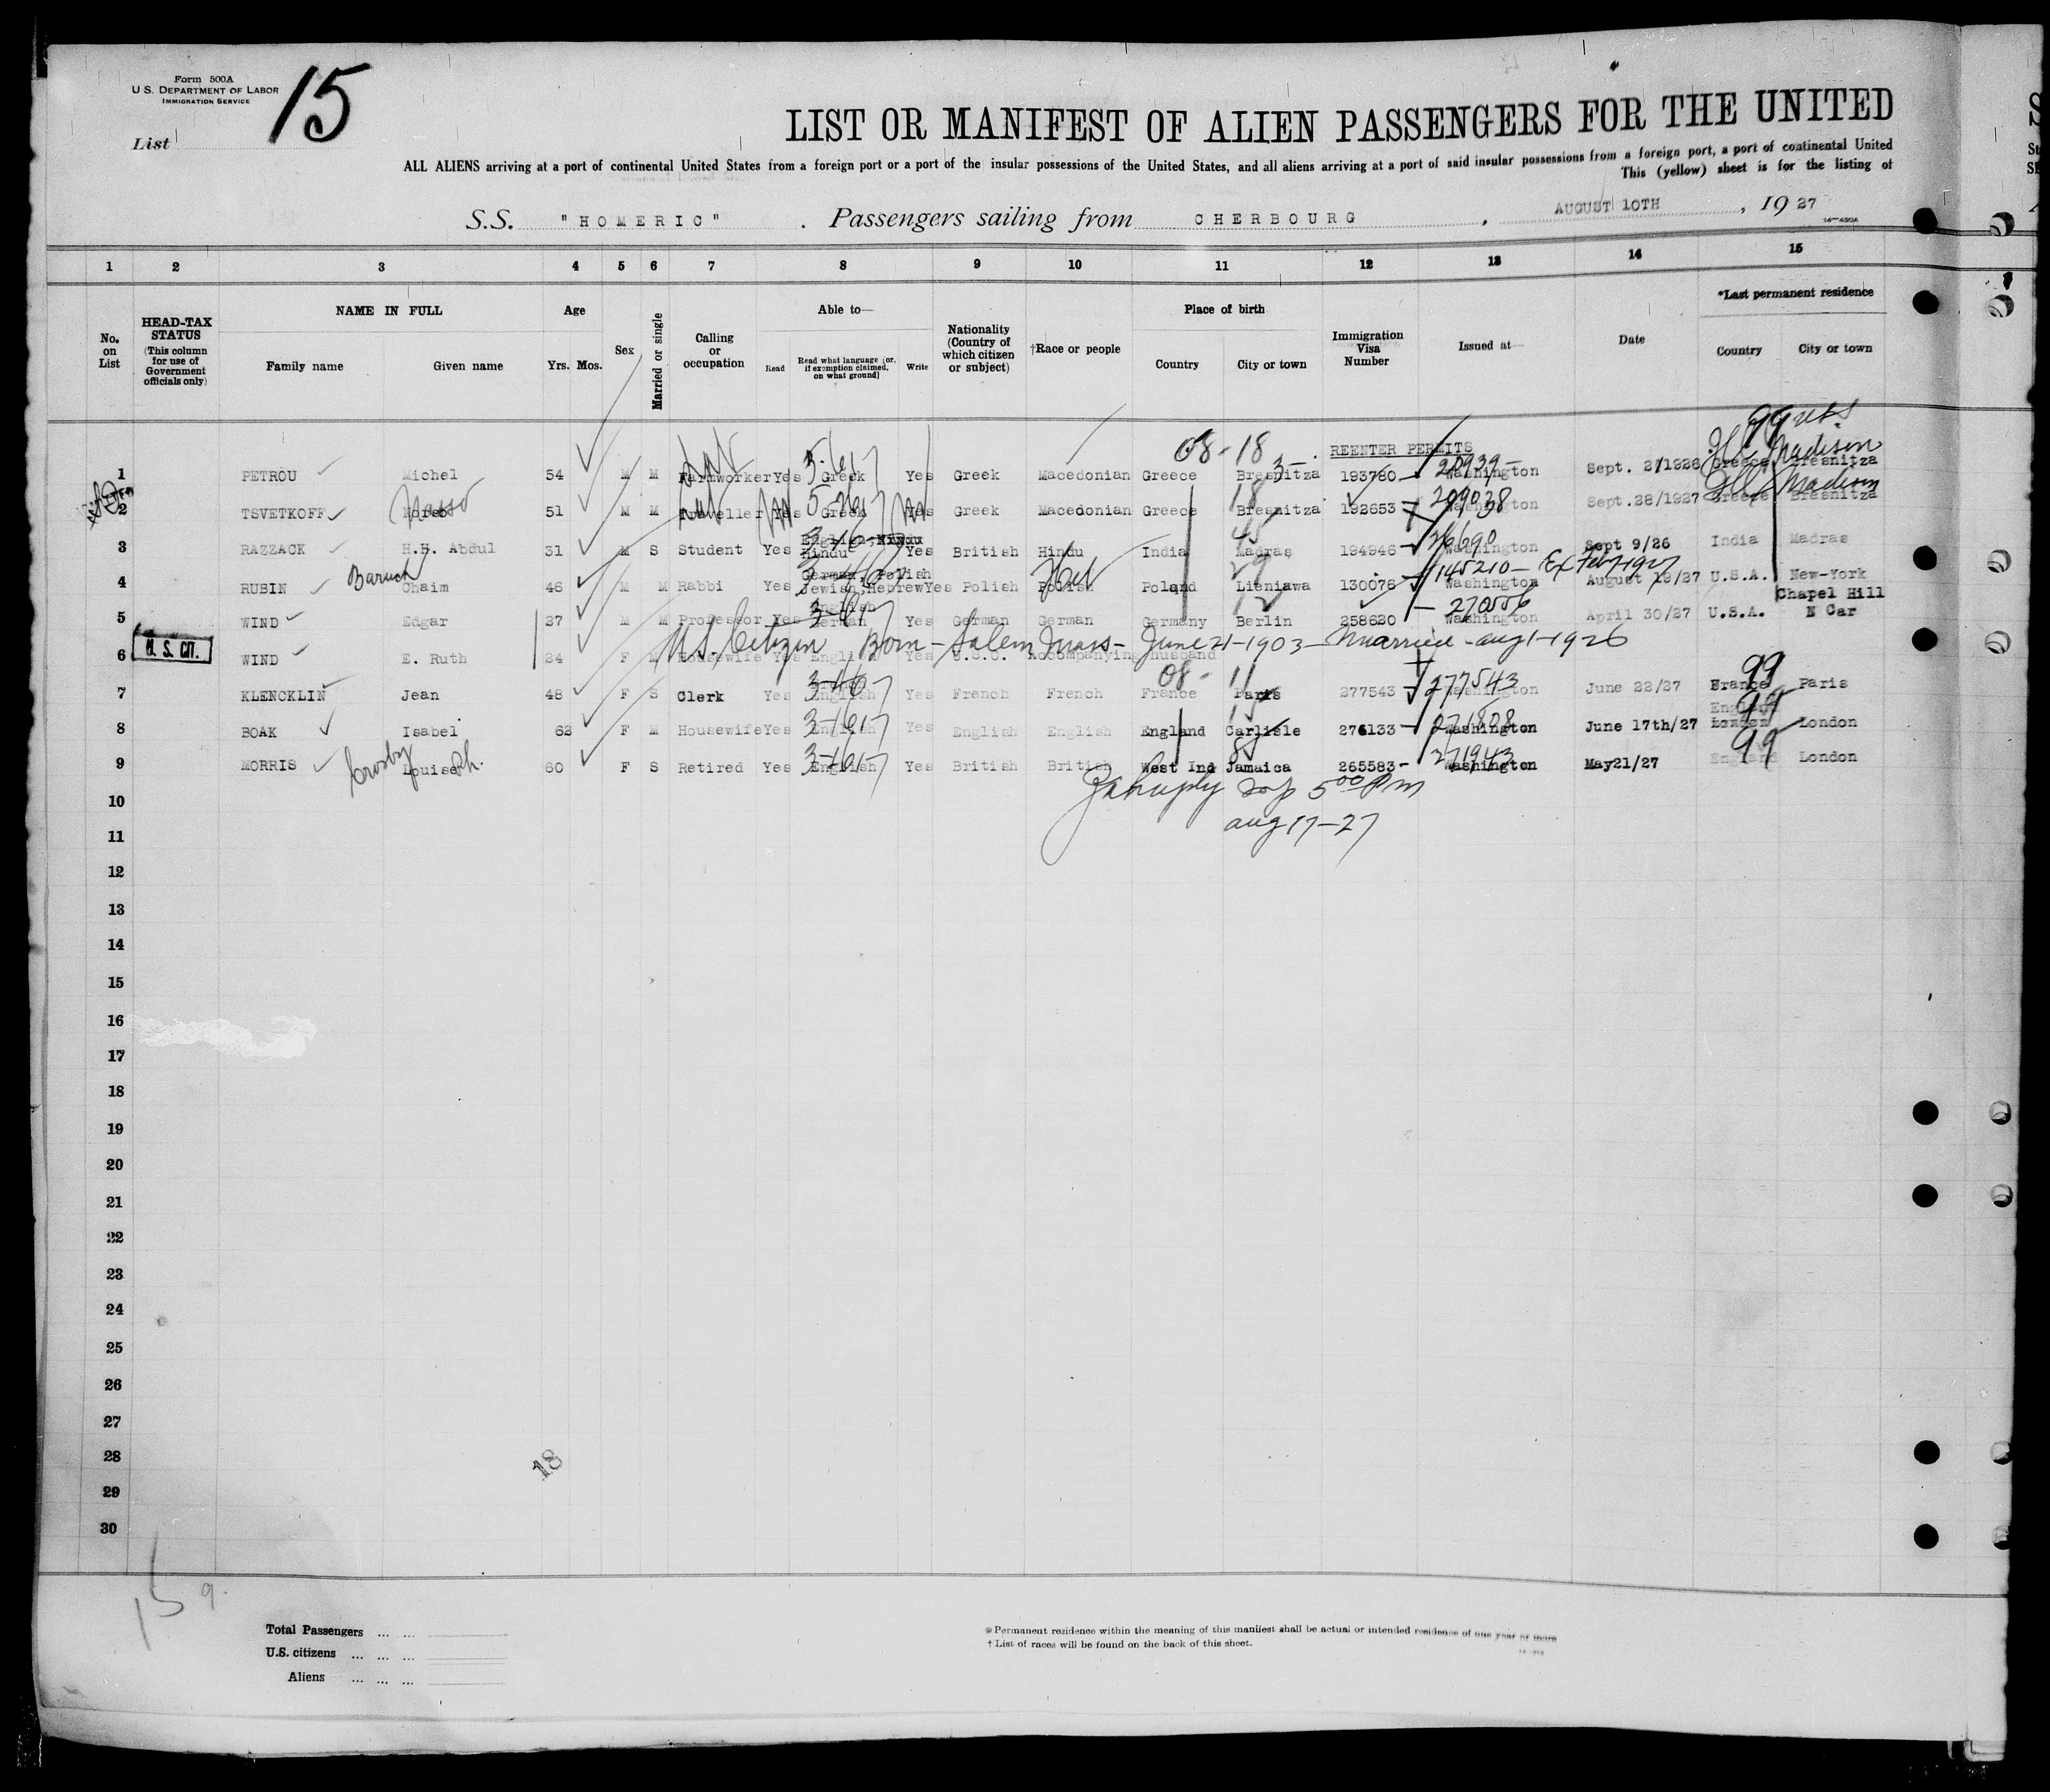 Form 500A
U. S. DEPARTMENT OF LABOR
IMMIGRATION SERVICE
15
List
LIST OR MANIFEST OF ALIEN PASSENGERS FOR THE UNITED
ALL ALIENS arriving at a port of continental United States from a foreign port or a port of the insular possessions of the United States, and all aliens arriving at a port of said insular possessions from a foreign port, a port of continental United
This (yellow) sheet is for the listing of
S.S. "HOMERIC". Passengers sailing from CHERBOURG, AUGUST 10TH, 1927
1 2 3 4 5 6 7 8 9 10 11 12 13 14 15
No. on List
HEAD-TAX STATUS (This column for use of Government officials only)
NAME IN FULL Family name Given name
Age Yrs. Mos.
Sex
Married or single
Calling or occupation
Able to— Read Read what language (or, if exemption claimed, on what ground) Write
Nationality (Country of which citizen or subject)
†Race or people
Place of birth Country City or town
Immigration Visa Number
Issued at—
Date
*Last permanent residence Country City or town
08-18 REENTER PERMITS
Madison
1 PETROU Michel 54 M M Farmworker Yes Greek Yes Greek Macedonian Greece Bresnitza 193780 Washington Sept. 2/1926 Greece Bresnitza
Madison
2 TSVETKOFF 51 M M Traveller Yes Greek Yes Greek Macedonian Greece Bresnitza 192653 209038 Washington Sept.28/1927 Greece Bresnitza
3 RAZZACK H.H. Abdul 31 M S Student Yes Hindu Yes British Hindu India Madras 194946 Washington Sept 9/26 India Madras
German, Polish
4 RUBIN Baruch Chaim 46 M M Rabbi Yes Jewish, Hebrew Yes Polish Polish Poland Lieniawa 130076 145210 Washington Ex Feb 7-1927 August 19/27 U.S.A. New-York
English Chapel Hill
5 WIND Edgar 27 M M Professor Yes German Yes German German Germany Berlin 258620 Washington April 30/27 U.S.A. N Car
U. S. CIT.
U.S. Citizen Born - Salem Mass - June 21-1903 - Married - Aug 1-1926
6 WIND E. Ruth 24 F M Housewife Yes English Yes Accompanying husband
7 KLENCKLIN Jean 48 F S Clerk Yes English Yes French French France Paris 277543 277543 Washington June 22/27 France Paris
England
8 BOAK Isabel 62 F M Housewife Yes English Yes English English England Carlisle 276133 Washington June 17th/27 London London
9 MORRIS Crosby Louise 60 F S Retired Yes English Yes British British West Ind Jamaica 265583 271943 Washington May21/27 England London
5 00 Pm
10
Aug 17-27
11
12
13
14
15
16
17
18
19
20
21
22
23
24
25
26
27
28
29
30
18
15 9.
Total Passengers ... ...
U.S. citizens ... ... ...
Aliens ... ... ...
* Permanent residence within the meaning of this manifest shall be actual or intended residence of one year or more
† List of races will be found on the back of this sheet.